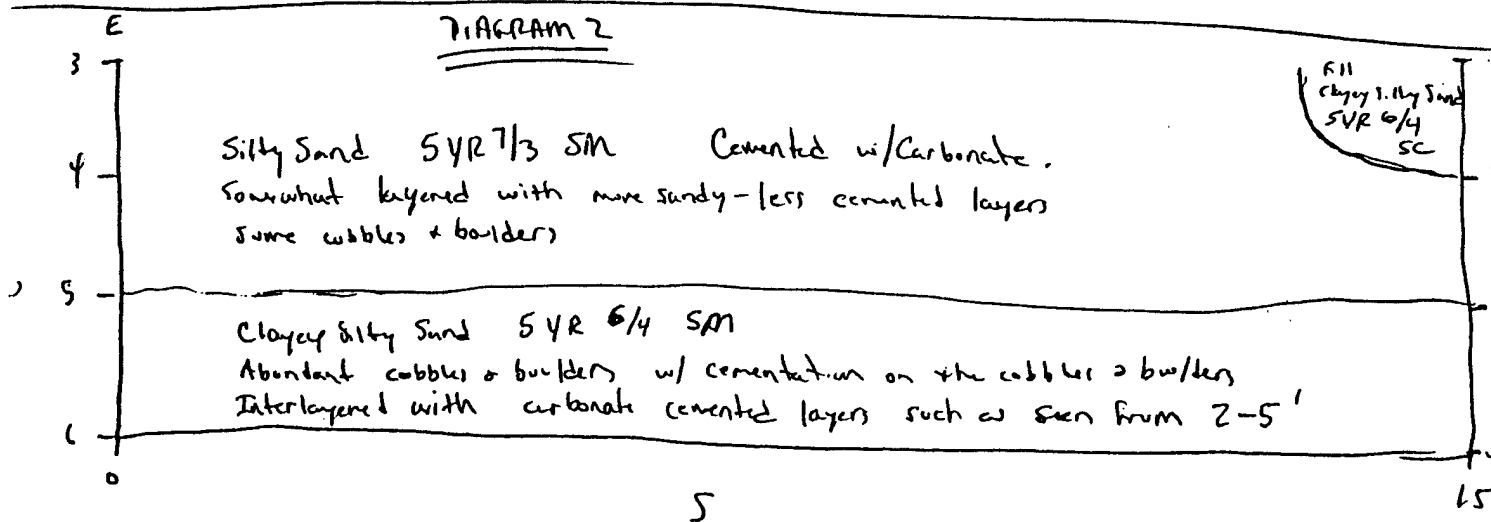 E
DIAGRAM 2
3
Fill
Clayey Silty Sand
5YR 6/4
SC
Silty Sand 5YR 7/3 SM Cemented w/Carbonate.
4
Somewhat layered with more sandy-less cemented layers
Some cobbles & boulders
5
Clayey Silty Sand 5YR 6/4 SM
Abundant cobbles & boulders w/ cementation on the cobbles & boulders
Interlayered with carbonate cemented layers such as seen from 2-5'
6
0
5
15